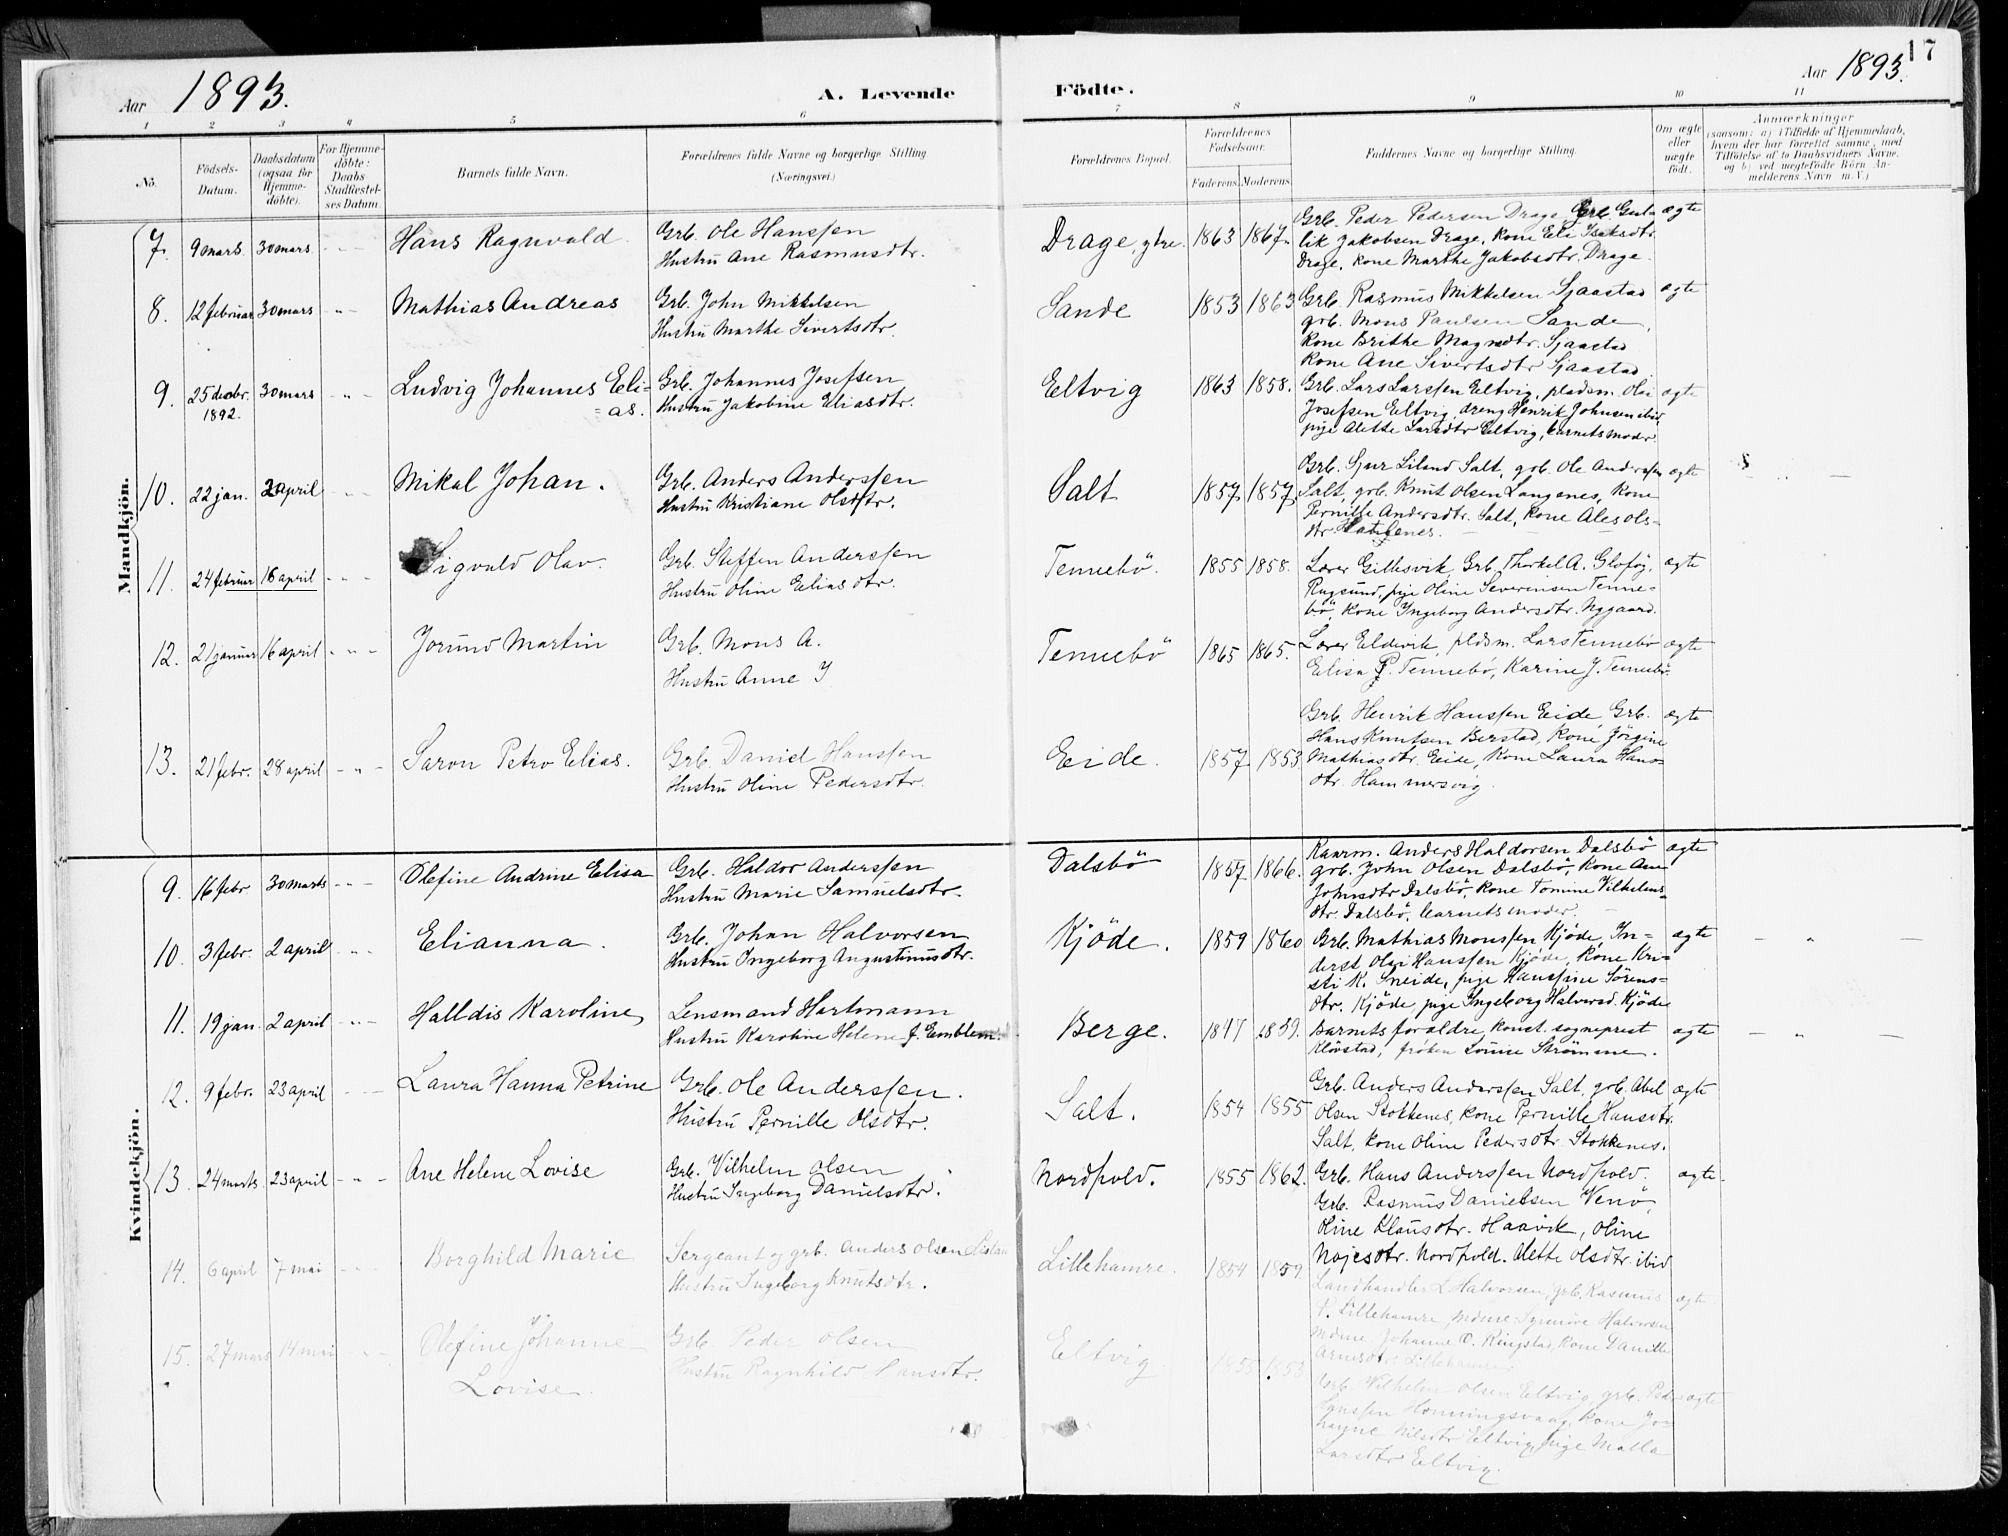 Aar 1893.
A. Levende
Födte.
Aar 1893.
17
1 2 3 4 5 6 7 8 9 10 11
No.
Födsels-
Datum.
Daabsdatum
(ogsaa for
Hjemme-
döbte).
For Hjemme-
döbte:
Daabs-
Stadfæstel-
ses Datum.
Barnets fulde Navn.
Forældrenes fulde Navne og borgerlige Stilling
(Næringsvei.)
Forældrenes Bopæl.
Forældrenes
Födselsaar.
Faderens. Moderens.
Faddernes Navne og borgerlige Stilling.
Om ægte
eller
uægte
födt.
Anmærkninger
(saasom: a) i Tilfælde af Hjemmedaab,
hvem der har forrettet samme, med
Tilföielse af to Daabsvidners Navne,
og b) ved uegtefödte Börn An-
melderens Navn m. V.)
Mandkjön.
7. 9 mars 30 mars Hans Ragnvald
Grb. Ole Hanssen
Hustru Ane Rasmusdtr.
Drage, ytre. 1863 1867
Grb. Peder Pedersen Drage, Grb. Gut-
lik Jakobsen Drage, Kone Eli Isaksdtr.
Drage, Kone Marthe Jakobsdtr. Drage
ægte
8. 12 februar 30 mars Mathias Andreas
Grb. John Mikkelsen
Hustru Marthe Sivertsdtr.
Sande 1853 1863
Grb. Rasmus Mikkelsen Sjaastad
grb. Mons Paulsen Sande,
Kone Brithe Magnsdtr. Sjaastad
Kone Ane Sivertsdtr Sjaastad
ægte
9. 25 decbr. 1892. 30 mars Ludvig Johannes Eli=
=as.
Grb. Johannes Josefsen
Hustru Jakobine Eliasdtr.
Eltvig 1863 1858.
Grb. Lars Larssen Eltvig, pladsm. Olai
Josefsen Eltvig, dreng Henrik Johnsen ibid,
pige Alette Larsdtr Eltvig, barnets moder
ægte
10. 22 jan. 2 april Mikal Johan.
Grb. Anders Anderssen
Hustru Kristiane Olsdtr.
Salt 1857 1857
Grb. Sjur Liland Salt, grb. Ole Anderssen
Salt, grb. Knut Olsen Langenes, Kone
Pernille Andersdtr. Salt, Kone Ales Ols-
dtr.
ægte
11. 24 februar 16 april Sigvald Olav.
Grb. Steffen Anderssen
Hustru Oline Eliasdtr.
Tennebö. 1855 1858.
Lærer Gillesvik, Grb. Thorkel A. Glofög,
Rugsund, pige Oline Severinsen Tenne-
bö, Kone Ingeborg Andersdtr. Nygaard.
ægte
12. 21 januar 16 april Jorund Martin
Grb. Mons A.
Hustru Anne J
Tennebö 1865 1865.
Lærer Eldevik, pldsm. Lars Tennebö
Elisa P. Tennebö, Karine J. Tennebö.
ægte
13. 21 febr. 28 april Saron Petro Elias.
Grb. Daniel Hanssen
Hustru Oline Pedersdtr.
Eide. 1857 1853
Grb. Henrik Hanssen Eide, Grb.
Hans Knutsen Berstad, Kone Jörgine
Mathiasdtr. Eide, Kone Laura Hans-
dtr. Hammersvig.
ægte
Kvindekjön.
9. 16 febr 30 marts Olefine Andrine Elisa
Grb. Haldor Anderssen
Hustru Marie Samuelsdtr.
Dalsbö 1857 1866.
Kaarm. Anders Haldorsen Dalsbö
grb. John Olsen Dalsbö, Kone Ane
Johnsdtr Dalsbö, Kone Tomine Vilhelms-
dtr. Dalsbö, barnets moder.
ægte
10. 3 febr. 2 april Elianna.
Grb. Johan Halvorsen
Hustru Ingeborg Augustinusdtr.
Kjöde. 1859 1860
Grb. Mathias Monssen Kjöde, In-
derst Olai Hanssen Kjöde, Kone Kri-
sti K. Sneide, pige Hansine Sörens-
dtr. Kjöde, pige Ingeborg Halvorsd. Kjöde
ægte
11. 19 jan 2 april Halldis Karoline
Lensmand Hartmann
Hustru Karoline Helene f. Emblem.
Berge. 1847 1859.
Barnets forældre, konst. sogneprest
Klövstad, fröken Louise Strömme.
ægte
12. 9 febr. 23 april Laura Hanna Petrine
Grb. Ole Anderssen.
Hustru Pernille Olsdtr.
Salt. 1854 1855
Grb. Anders Anderssen Salt, grb. Abel
Olsen Stokkenes, Kone Pernille Hansdtr.
Salt, Kone Oline Pedersdtr. Stokkenes.
ægte
13. 24 marts 23 april Ane Helene Lovise
Grb. Vilhelm Olsen
Hustru Ingeborg Danielsdtr.
Nordpold. 1855 1862.
Grb. Hans Anderssen Nordpold.
Grb. Rasmus Danielsen Venö,
Oline Klausdtr. Haavik, Oline
Nordpold. Alette Olsdtr. ibid
ægte
14. 6 april 7 mai Borghild Marie
Sergeant og grb. Anders Olsen
Hustru Ingeborg Knutsdtr.
Lillehamre. 1854 1859
Landhandler L Halvorsen, grb. Rasmus
P. Lillehamre, Mdme Synnöve Halvorsen
Mdme Johanne C. Ringstad, Kone Danille
Arnesdtr Lillehamre.
ægte
15. 27 mars 14 mai Olefine Johanne
Lovise.
Grb. Peder Olsen
Hustru Ragnhild Hansdtr.
Eltvig 1855 1853
Grb. Vilhelm Olsen Eltvig, grb. Peder
Honningsvaag, Kone Jo-
hanne Nilsdtr Eltvig, pige Malla
Larsdtr Eltvig.
ægte